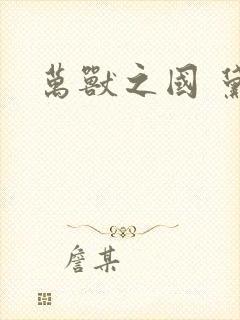 萬獸之國
詹某